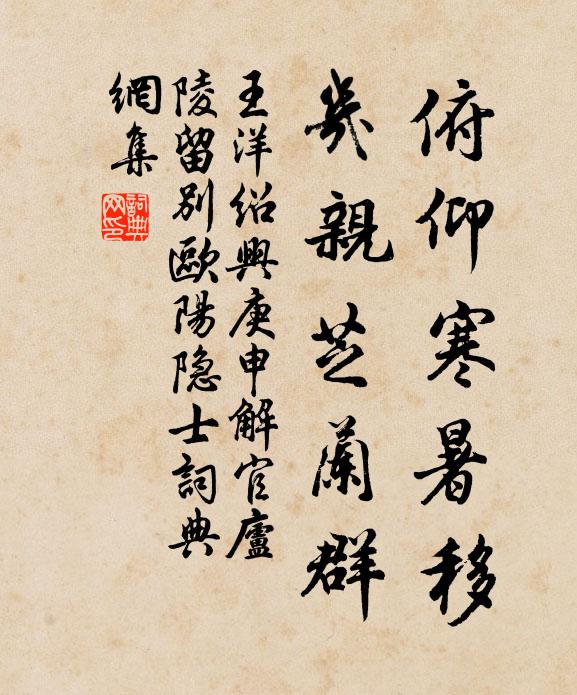 俯仰寒暑移
幾親芝蘭群
王洋紹興庚申解官廬
陵留別歐陽隐士詞典
網集
詞典网印